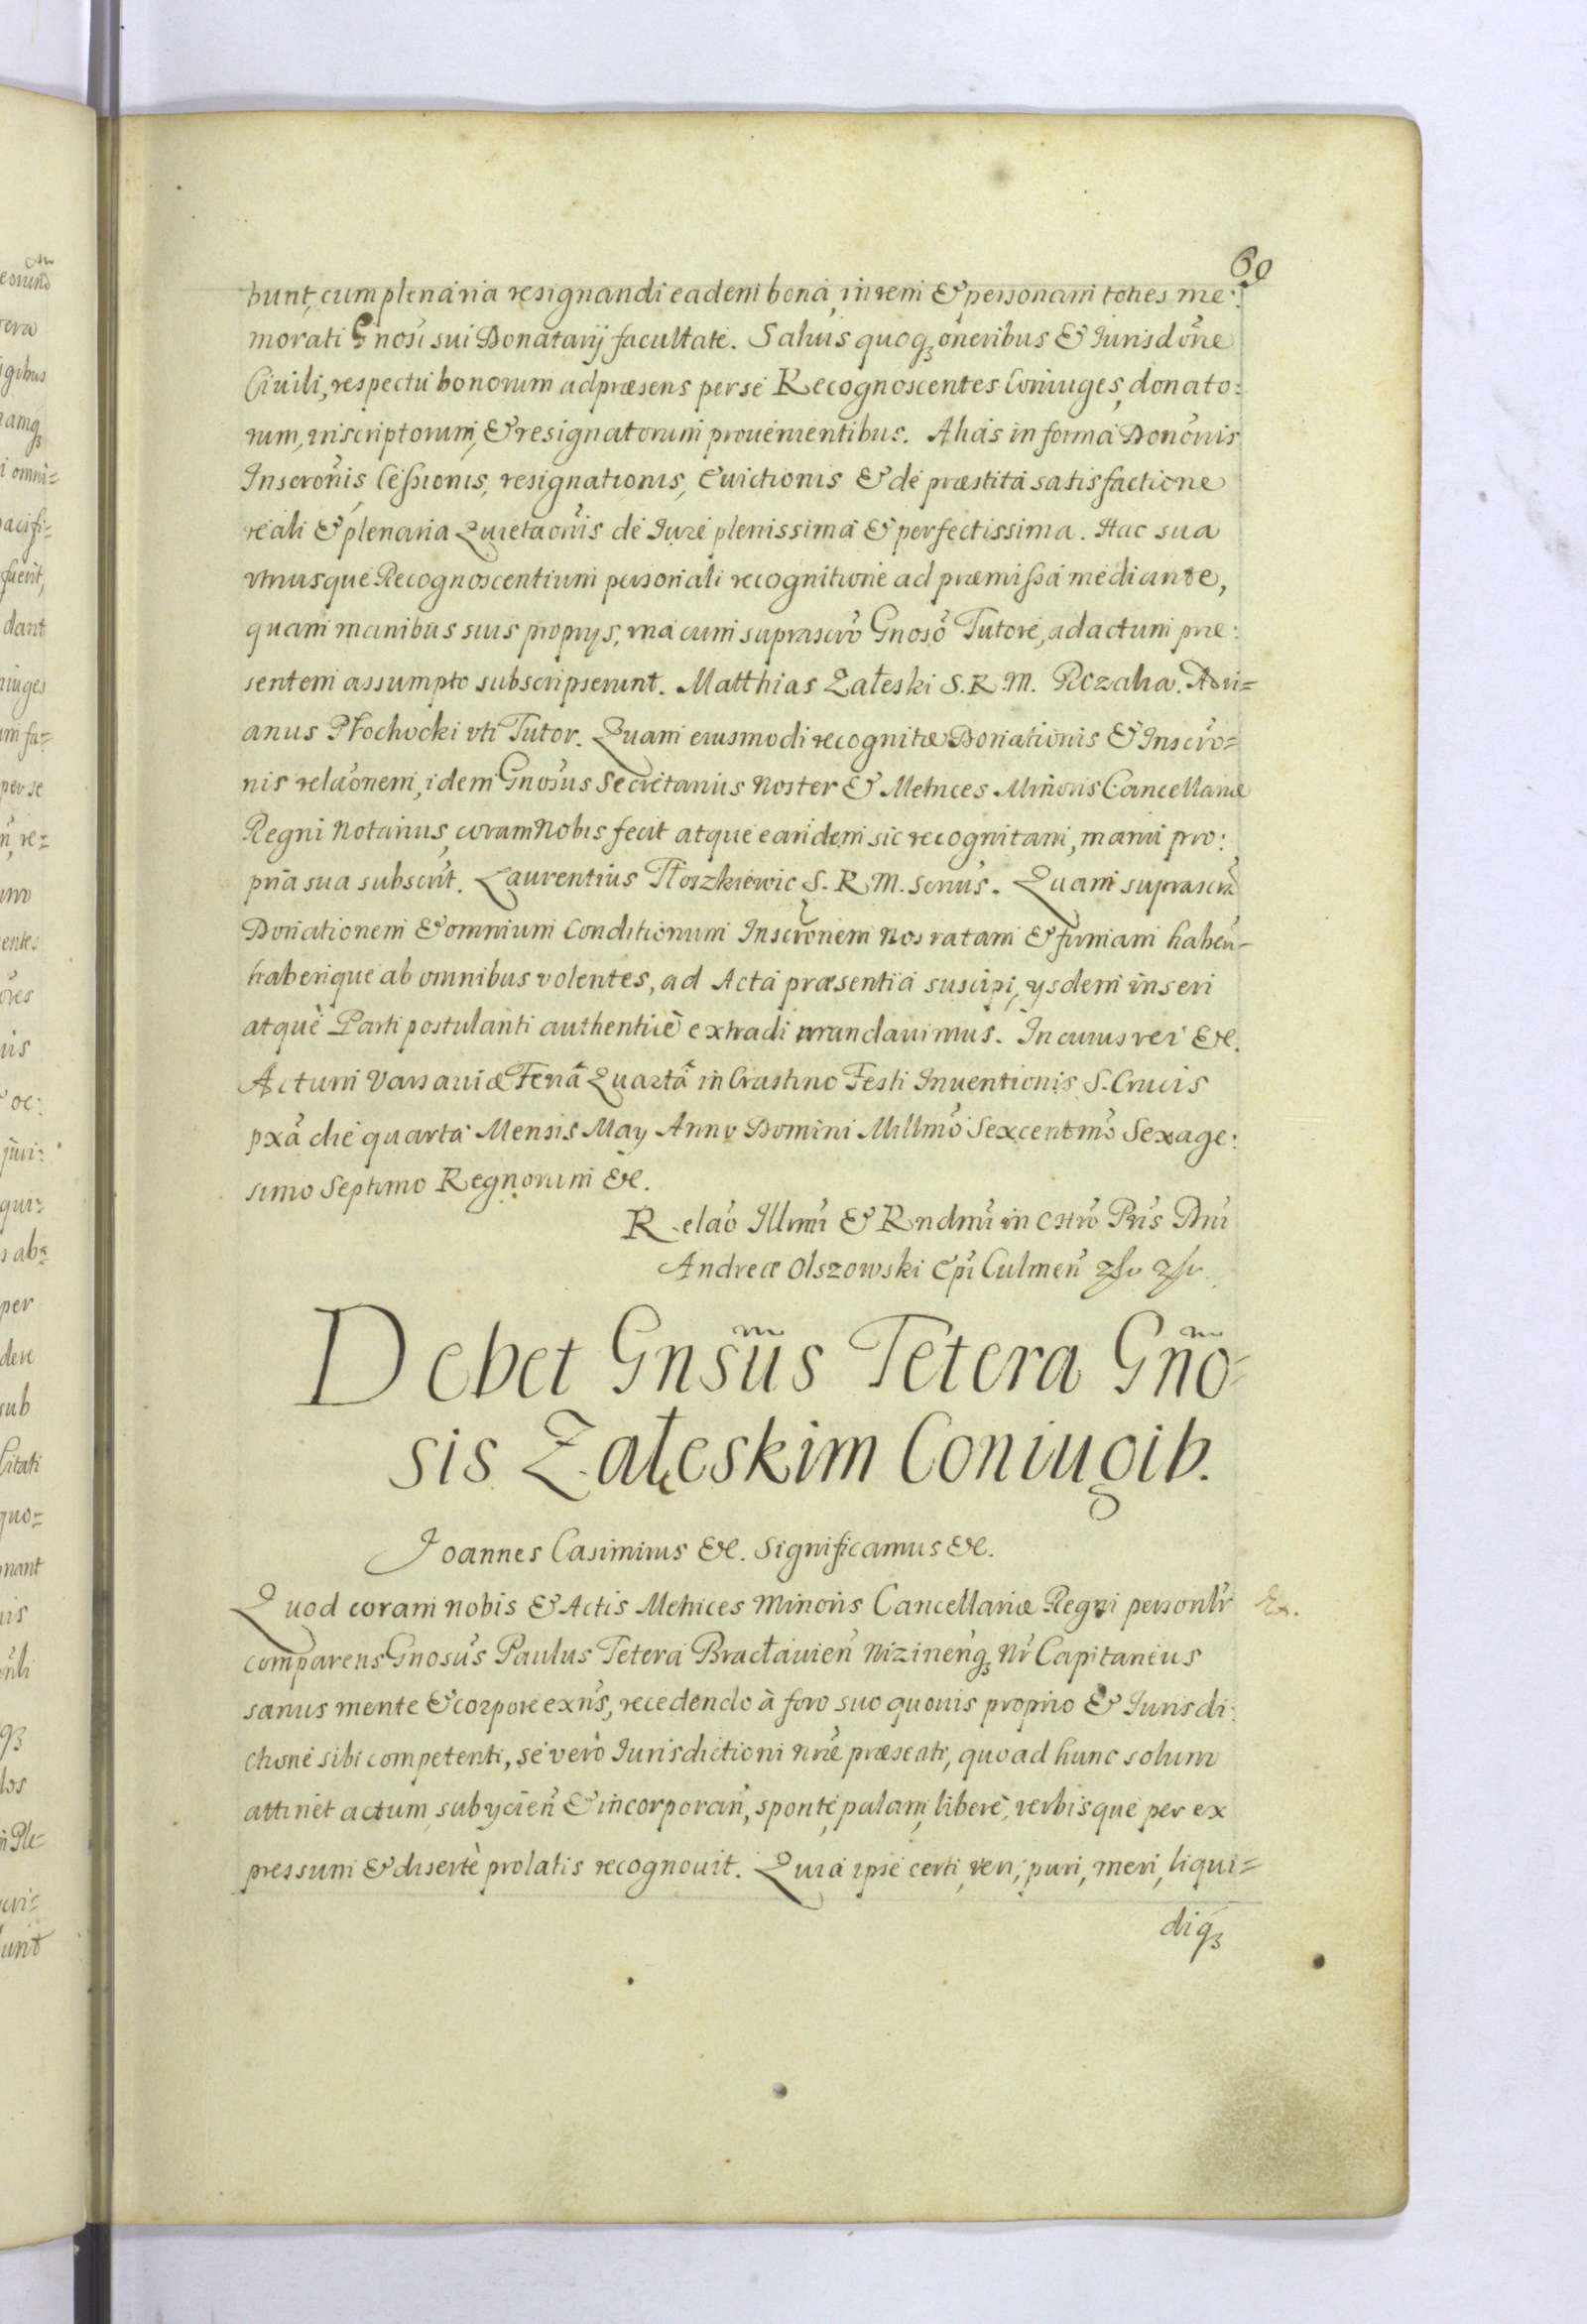 60
bunt, cum plenaria resignandi eadem bona, in rem & personam toties me:
morati Gnosi sui Donatarij facultate. Saluis quoq; oneribus & Jurisdone
Ciuili, respectu bonorum ad præsens per se Recognoscentes Coniuges, donato:
rum, inscriptorum, & resignatorum prouenientibus. Alias in forma Dononis
Inscronis Cessionis, resignationis, Euictionis & de præstita satisfactione
reali & plenaria Quietaonis de Jure plenissima & perfectissima. Hac sua
vtriusque Recognoscentium personali recognitione ad præmissa mediante,
quam manibus suis proprijs, vna cum suprascro Gnoso Tutore, ad actum præ:
sentem assumpto subscripserunt. Matthias Załeski S. R. M. Adri=
anus Płochocki vti Tutor. Quam eiusmodi recognitæ Donationis & Inscro=
nis relaonem, idem Gnosus Secretarius Noster & Metrices Minoris Cancellariæ
Regni Notarius, coram Nobis fecit atque eandem sic recognitam, manu pro:
pria sua subscrit. Laurentius S. R. M. Scrius. Quam suprascra
Donationem & omnium Conditionum Inscronem Nos ratam & firmam haben-
haberique ab omnibus volentes, ad Acta præsentia suscipi, ijsdem inseri
atquè Parti postulanti authenticè extradi mandauimus. In cuius rei &c.
Actum Varsauiæ Feriâ Quartâ in Crastino Festi Inuentionis S. Crucis
pxâ die quarta Mensis May Anno Domini Millmo Sexcentmo Sexage:
simo Septimo Regnorum &c.
Relao Illmi & Rndmi in Chro Pris Dni
Andreæ Olszowski Epi Culmen
Debet Gnsus Tetera Gno-
sis Załęskim Coniugib.
Joannes Casimirus &c. Significamus &c.
Quod coram nobis & Actis Metrices Minoris Cancellariæ Regni personlr
Ex.
comparens Gnosus Paulus Tetera Bracłauien Nizinenq; Nr Capitaneus
sanus mente & corpore exns, recedendo à foro suo quouis proprio & Jurisdi:
ctione sibi competenti, se verò Jurisdictioni nræ præsenti, quo ad hunc solum
attinet actum subijcien & incorporan, sponte, palam, liberè, verbisque per ex
pressum & disertè prolatis recognouit. Quia ipse certi, veri, puri, meri, liqui=
diq;